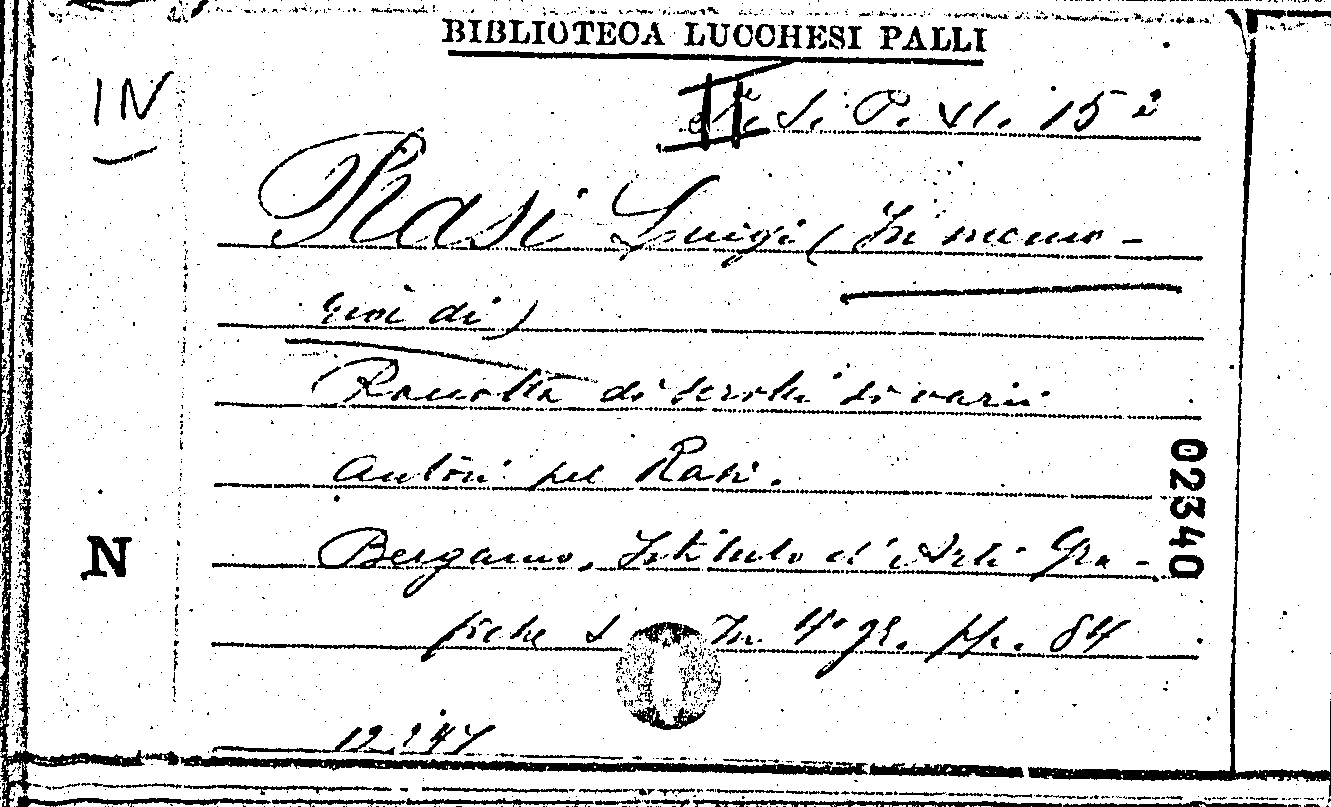 BIBLIOTECA LUCCHESI PALLI
IN
II. P. VI. 15²
Rasi Luigi (In memo-
ria di)
Raccolta di scritti di varii
autori pel Rasi.
Bergamo, Istituto d'Arti Gra-
fiche In 4° gr. pp. 84
02340
N
12.247